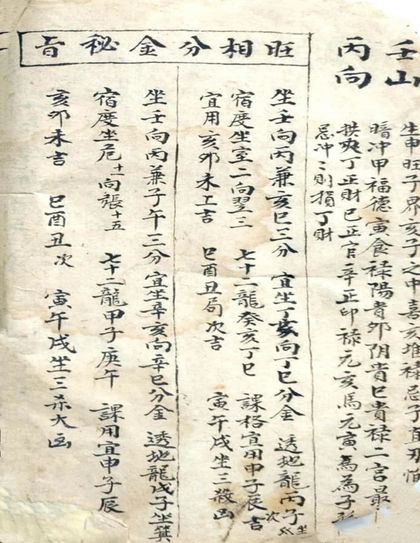 壬山
丙向
生申旺子界亥子之中喜忌堆祿忌子宜
暗冲甲福德寅食祿陽貴卯阴貴巳貴祿二言最
拱夾丁正財巳正官辛正印祿元亥馬元寅馬為子
忌冲〻則損丁財
旺相分金秘旨
坐壬向丙兼亥巳三分 宜坐丁亥向丁巳分金 透地龍丙子坐
宿度坐室二向翌三 七十二龍癸亥丁巳 課格宜用甲子辰吉次
宜用亥卯未工吉 巳酉丑局次吉 寅午戌坐三殺凶
坐壬向丙兼子午三分 宜坐辛亥向辛巳分金 透地龍戊子坐箕
宿度坐危十一向張十五 七十二龍甲子庚午 課用宜申子辰
亥卯未吉 巳酉丑次 寅午戌坐三杀大凶